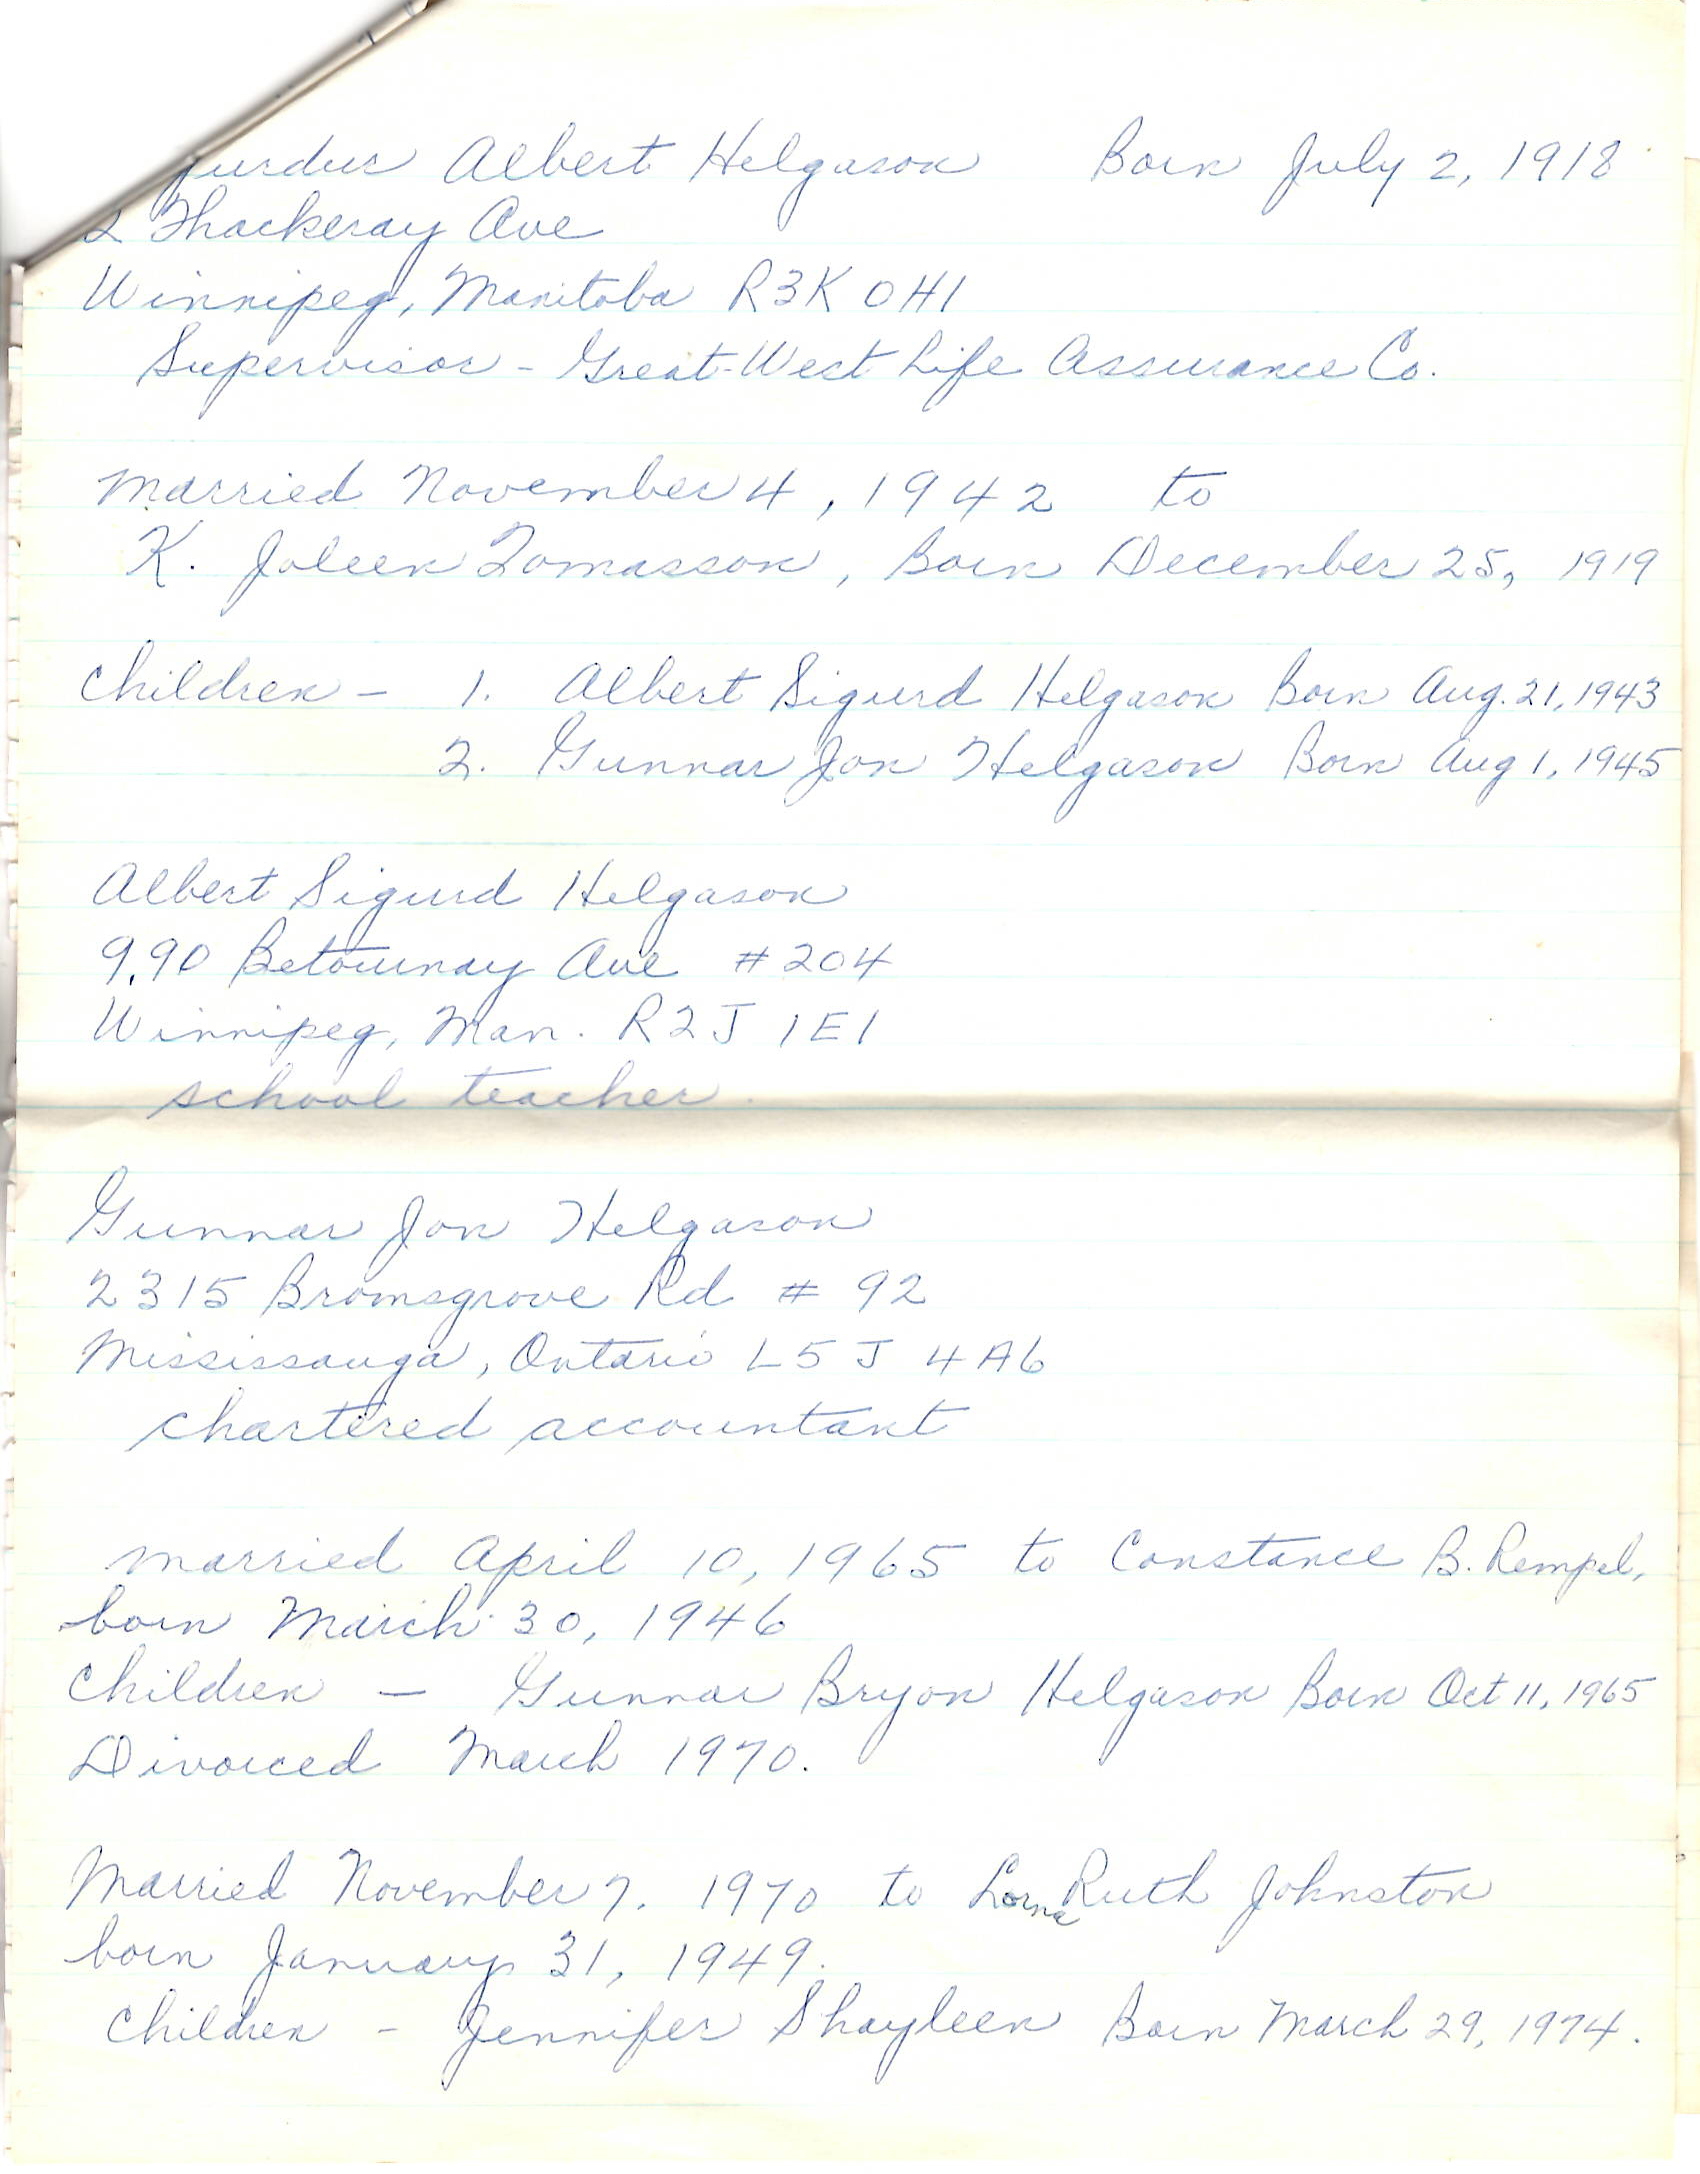 gurdur Albert Helgason Born July 2, 1918
2 Thackeray Ave
Winnipeg, Manitoba R3K 0H1
Supervisor - Great-West Life Assurance Co.
Married November 4, 1942 to
K. Joleen Tomasson, Born December 25, 1919
Children - 1. Albert Sigurd Helgason Born Aug. 21, 1943
2. Gunnar Jon Helgason Born Aug 1, 1945
Albert Sigurd Helgason
990 Betournay Ave #204
Winnipeg, Man. R2J 1E1
school teacher.
Gunnar Jon Helgason
2315 Bromsgrove Rd # 92
Mississauga, Ontario L5J 4A6
chartered accountant
married April 10, 1965 to Constance B. Rempel,
born March 30, 1946
Children - Gunnar Bryon Helgason Born Oct 11, 1965
Divorced March 1970.
Married November 7, 1970 to Lorna Ruth Johnston
born January 31, 1949.
Children - Jennifer Shayleen Born March 29, 1974.